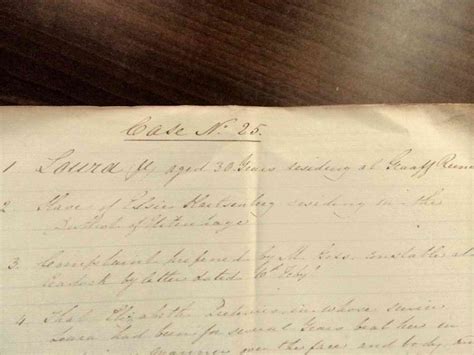 Case No. 25.
1 Loura aged 30 Years residing at Graaff Reinet
2 Slave of residing in the
District of Uitenhage
3. Complaint preferred by Mr constable at
Cradock by letter dated 10th Feby
4 That Elizabeth in whose service
Loura had been for several Years beat her in
manner over the face and body